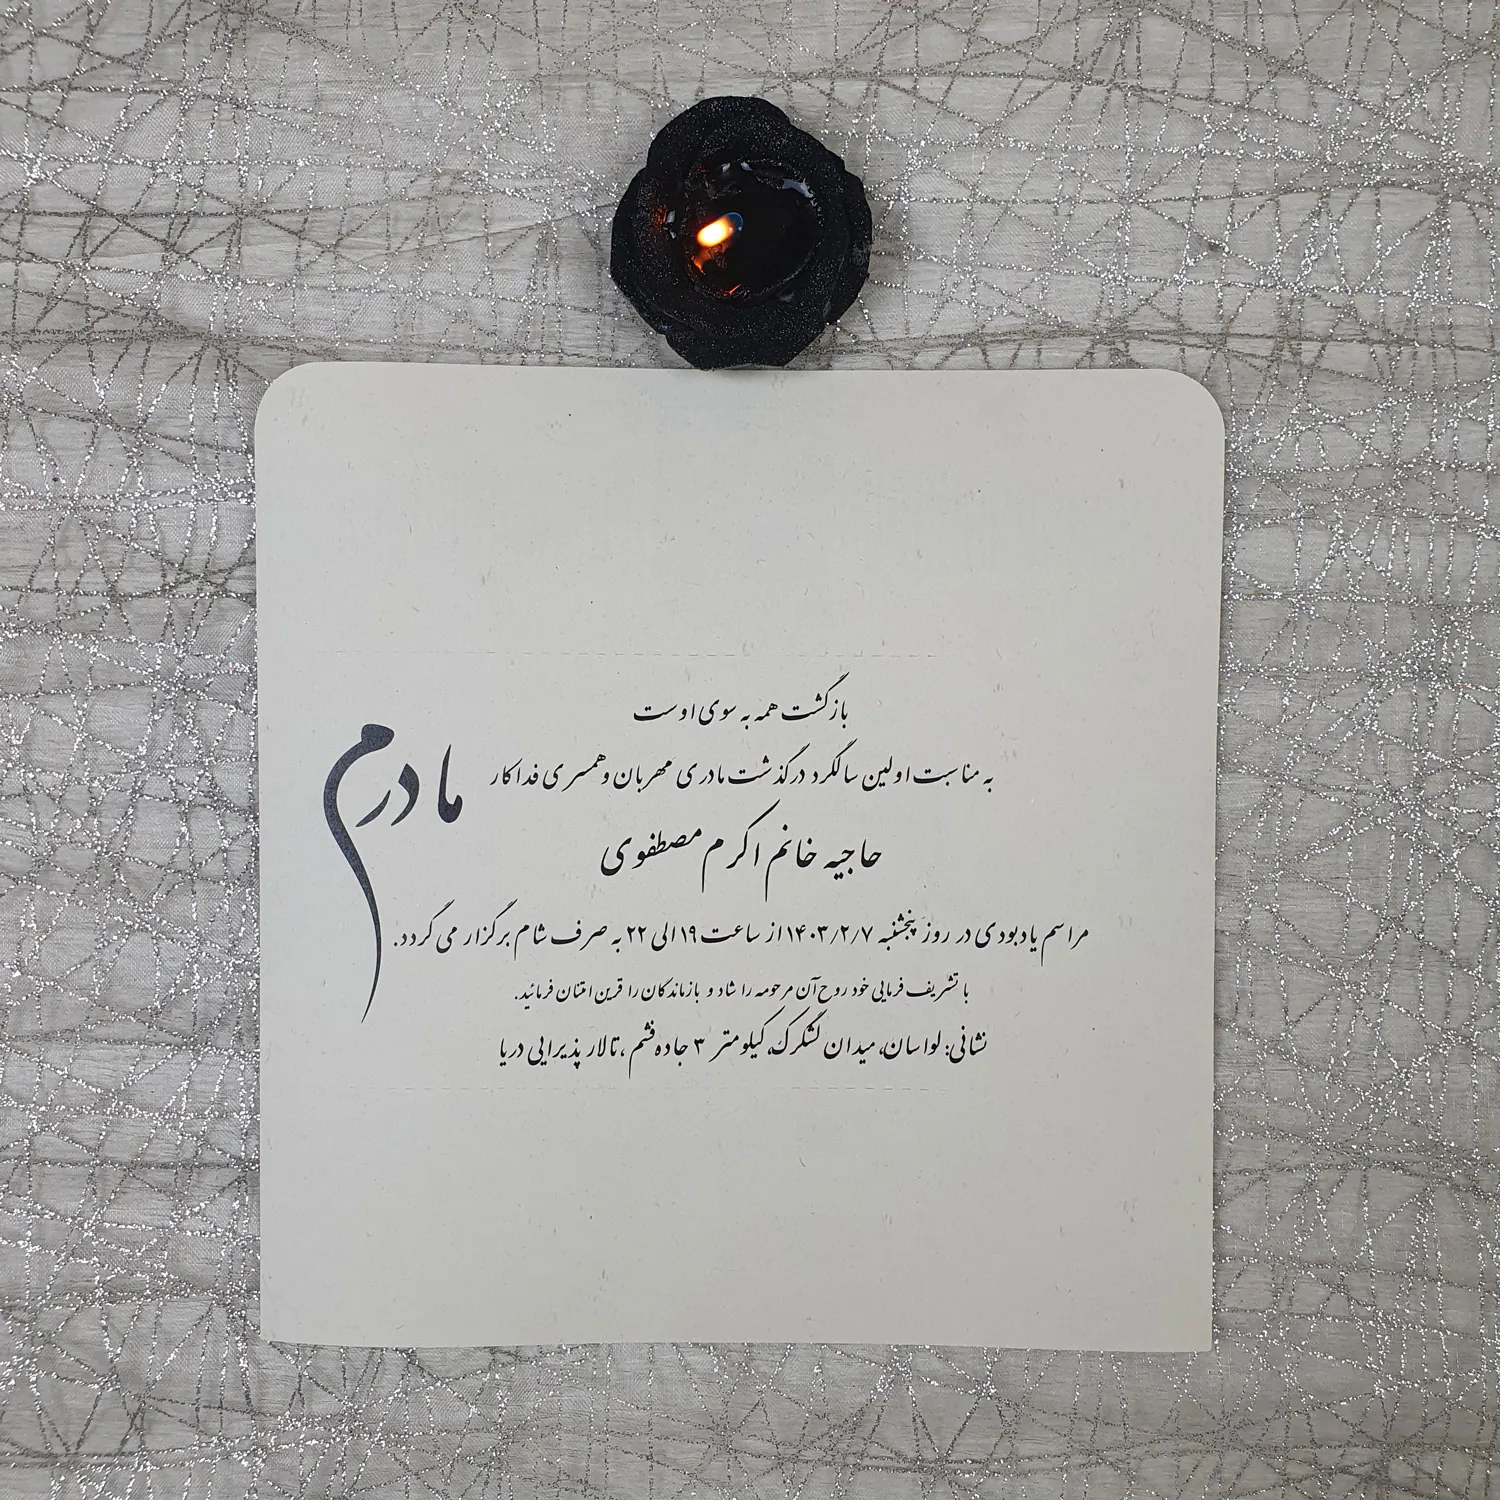 بازگشت همه به سوی اوست
به مناسبت اولین سالگرد درگذشت مادری مهربان و همسری فداکار
مادرم
حاجیه خانم اکرم مصطفوی
مراسم یادبودی در روز پنجشنبه ۱۴۰۳/۲/۷ از ساعت ۱۹ الی ۲۲ به صرف شام برگزار می گردد.
با تشریف فرمایی خود روح آن مرحومه را شاد و بازماندگان را قرین امتنان فرمائید.
نشانی: لواسان، میدان لشگرک، کیلومتر ۳ جاده فشم، تالار پذیرایی دریا